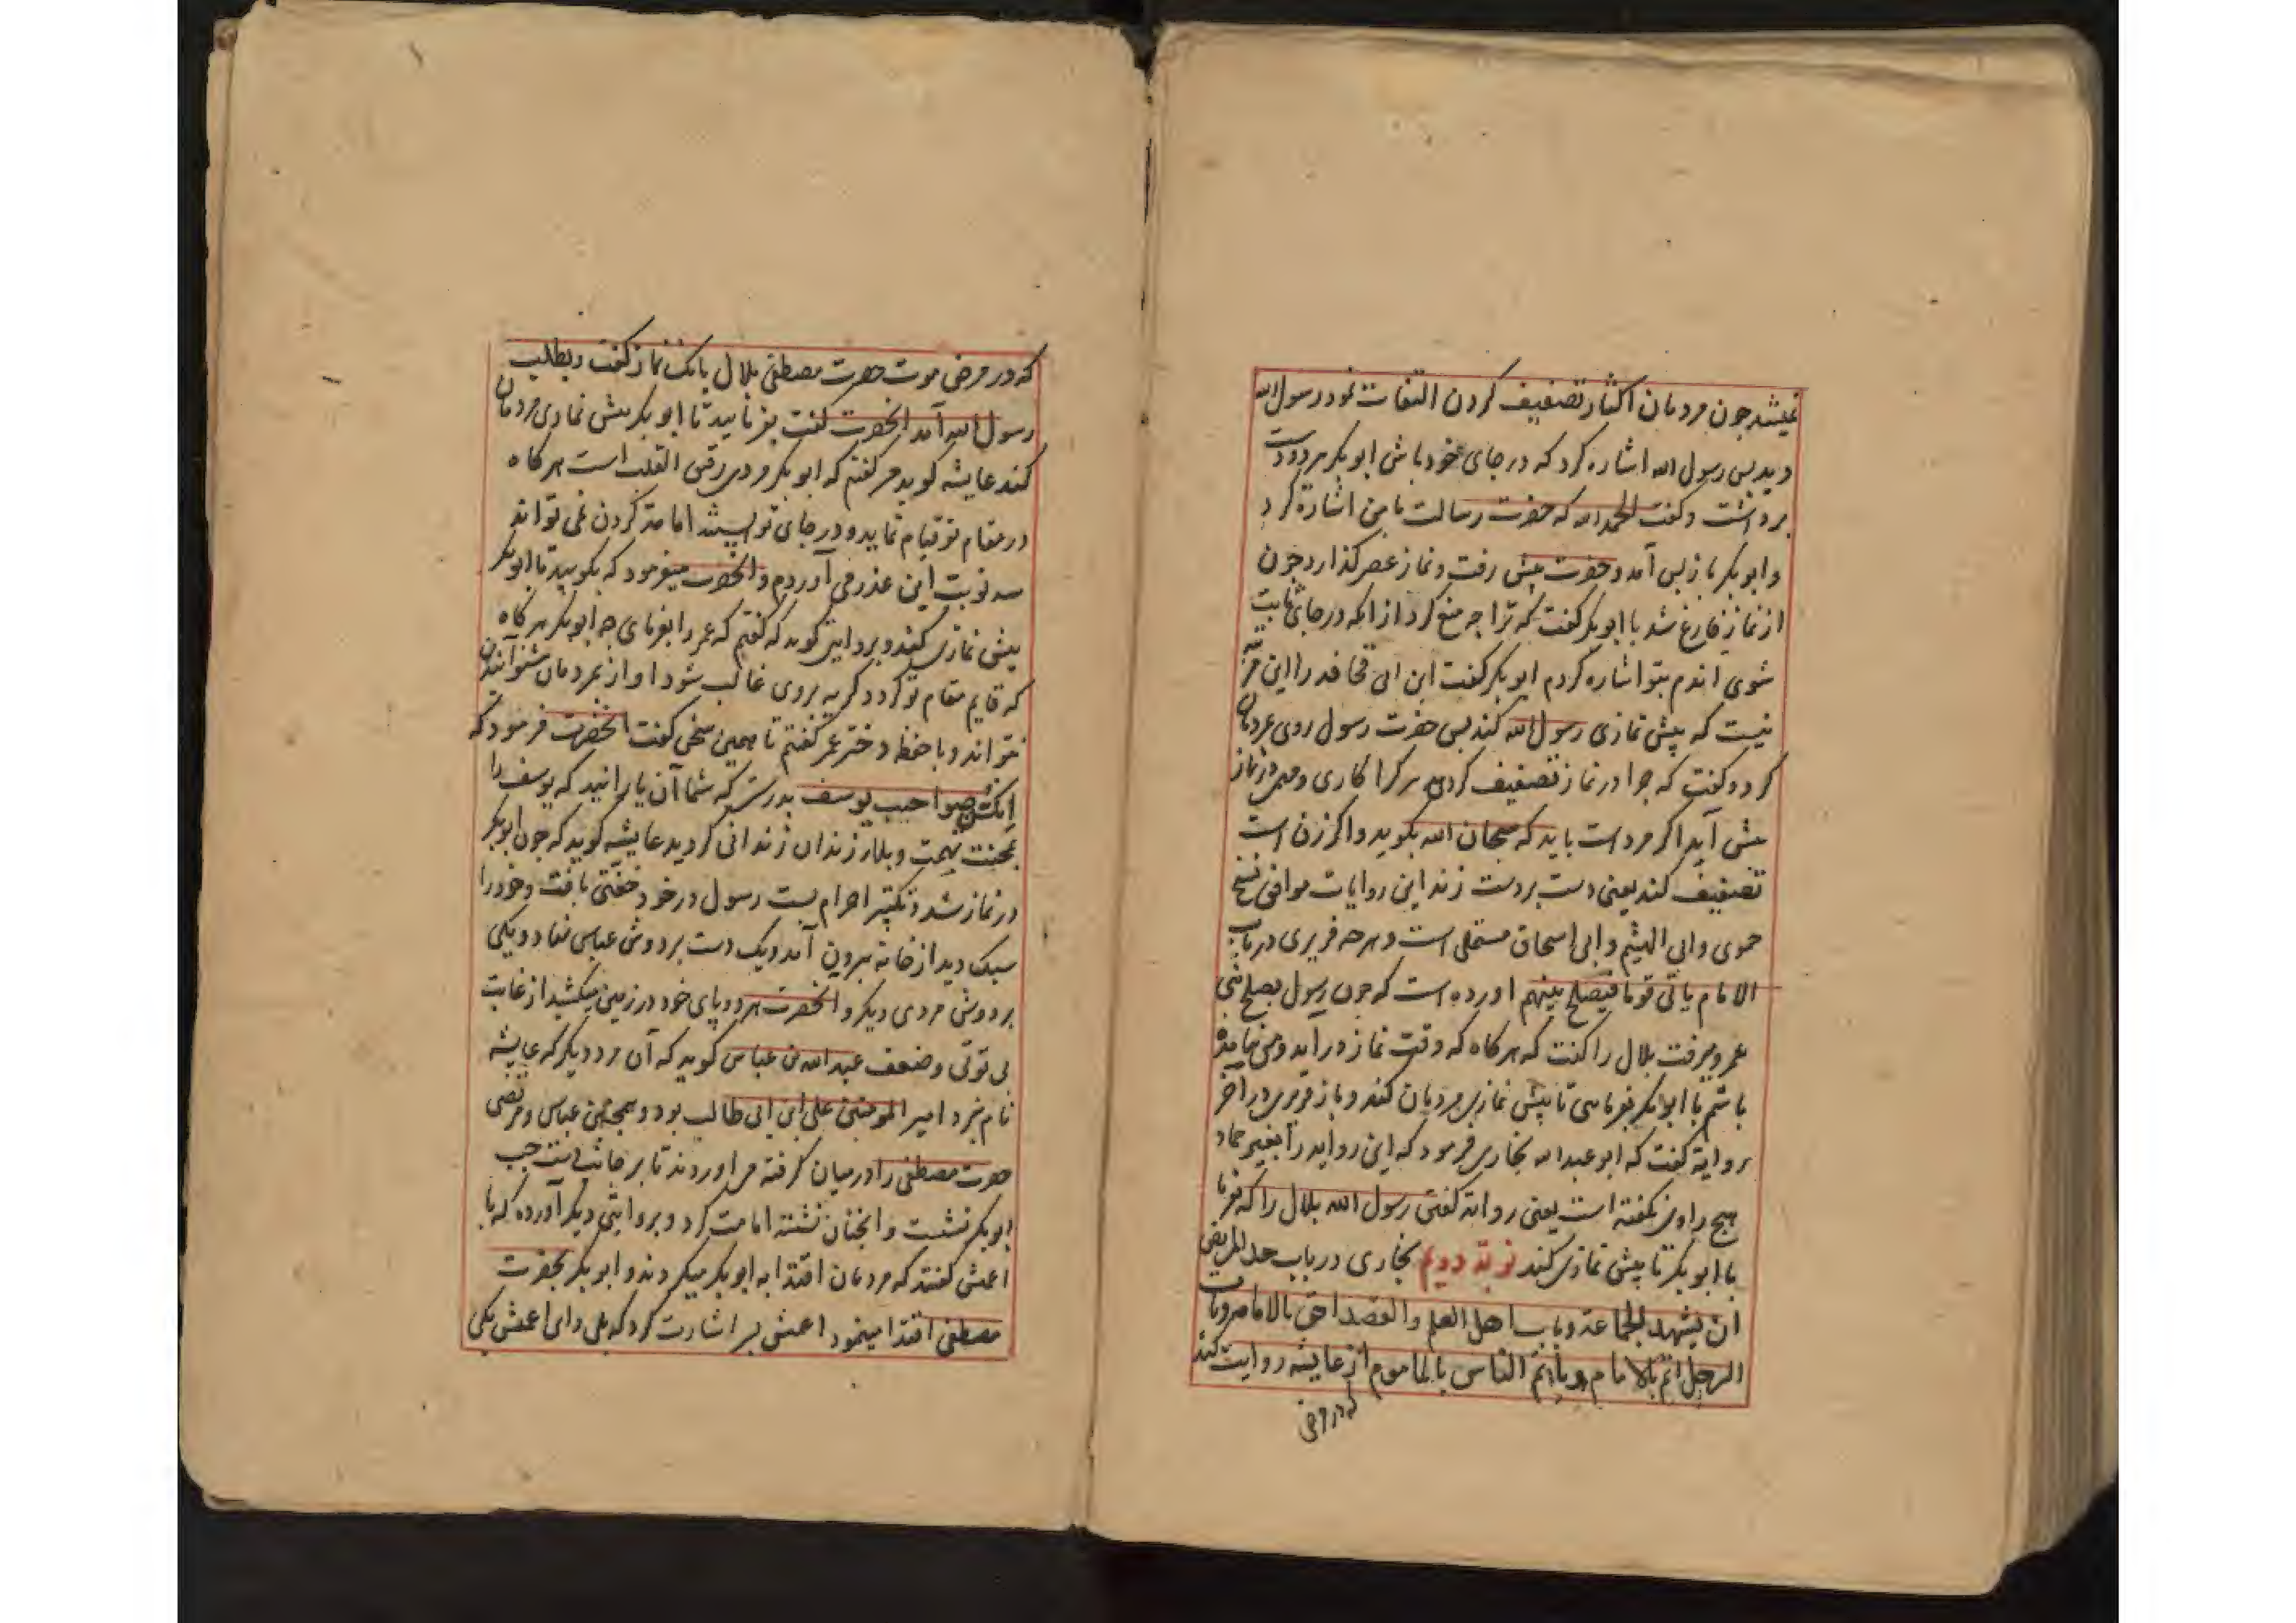 نمیشد جون مردمان اکثار تصفیف کردن التفات نمود رسول الله
دید بس رسول الله اشاره کرد که در جای خود باش ابوبکر هر دو دست
برداشت و گفت الحمد الله که حضرت رسالت با من اشارة کرد
و ابوبکر باز بس آمد و حضرت پیش رفت و نماز عصر کذارد جون
از نماز فارغ شد با ابوبکر کفت که ترا چه منع کرد از انکه در جای ثابت
شوی اندم بتو اشاره کردم ابوبکر کفت ابن ابی قحافه را این مرتبه
نیست که پیش نمازی رسول الله کند بس حضرت رسول روی بمردمان
کرد و کفت که چرا در نماز تصفیف کردید هر کرا کاری و مهمی در نماز
پیش آید اکر مرد است باید که سبحان الله بکوید و اکر زن است
تصفیف کند یعنی دست بر دست زند این روایات موافق نسخ
حموی و ابی الهیثم و ابی اسحاق مستملی است و هرچه فربری در باب
الامام یاتی قوما فیصلح بینهم اورده است که جون رسول بصلح بنی
عمرو میرفت بلال را کفت که هرکاه که وقت نماز در آید و من نیامده
باشم با ابوبکر بفرمای تا پیش نمازی مردمان کند و باز فربری در آخر
روایة کفت که ابو عبد الله بخاری فرمود که این روایه را بغیر حماد
هیج راوی نکفته است یعنی روایه کفتن رسول الله بلال را که بفرما
با ابوبکر تا پیش نمازی کند نوبة دویم بخاری در باب حد المریض
ان یشهد الجماعة و باب اهل العلم و الفضل احق بالامامة و باب
الرجل یاتم بالامام و یاتم الناس بالماموم از عایشه روایت کند
که در مرض
که در مرض موت حضرت مصطفی بلال بانک نماز کفت و بطلب
رسول الله آمد آنحضرت کفت بفرمایید تا ابوبکر پیش نمازی مردمان
کند عایشه کوید من کفتم که ابوبکر مردی رقیق القلب است هرکاه
در مقام تو قیام نماید و در جای تو ایستد امامة کردن نمی تواند
سه نوبت این عذر می آوردم و آنحضرت میفرمود که بکویید تا ابوبکر
پیش نمازی کند و بروایتی کوید که کفتم که عمر را بفرمای چه ابوبکر هرکاه
که قایم مقام تو کردد کریه بروی غالب شود اواز بمردمان شنوانیدن
نتواند و با حفظه دختر عمر کفتم تا همین سخن کفت آنحضرت فرمود که
انکن صواحب یوسف بدرستی که شما آن یارانید که یوسف را
بمحنت تهمت و بلاء زندان زندانی کردید عایشه کوید که جون ابوبکر
در نماز شد و تکبیر احرام بست رسول در خود خفتی یافت و خود را
سبک دید از خانه بیرون آمد و یک دست بر دوش عباس نهاد و یکی
بر دوش مردی دیکر و آنحضرت هر دو پای خود در زمین میکشید از غایت
بی قوتی و ضعف عبد الله بن عباس کوید که آن مرد دیکر که عایشه
نام نبرد امیر المومنین علی ابن ابی طالب بود و همچنین عباس و مرتضی
حضرت مصطفی را در میان کرفته می اوردند تا بر جانب دست چپ
ابوبکر نشست و انچنان نشسته امامت کرد و بروایتی دیکر آورده که با
اعمش کفتند که مردمان اقتدا به ابوبکر میکردند و ابوبکر بحضرت
مصطفی اقتدا مینمود اعمش بسر اشارت کرد که بلی و ای اعمش یکی